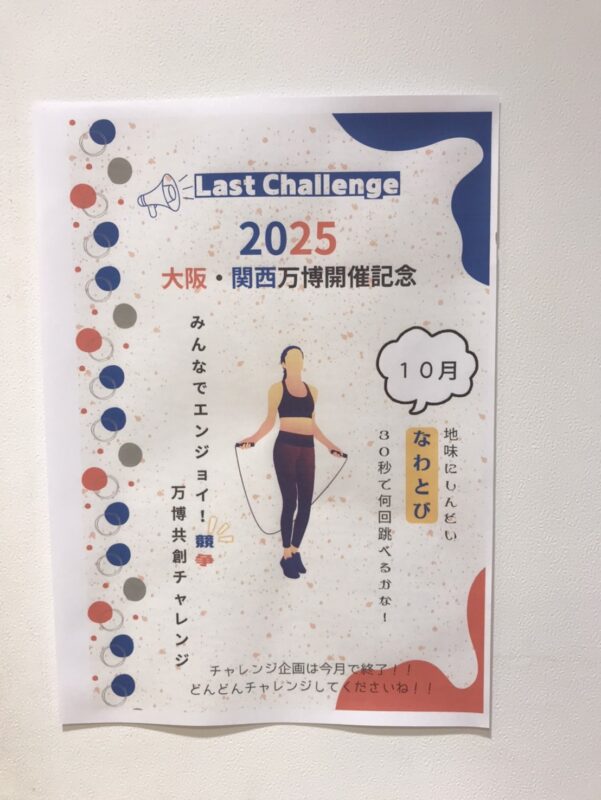 Last Challenge
2025
大阪・関西万博開催記念
みんなでエンジョイ！競争
万博共創チャレンジ
１０月
地味にしんどい
なわとび
３０秒で何回跳べるかな！
チャレンジ企画は今月で終了！！
どんどんチャレンジしてくださいね！！